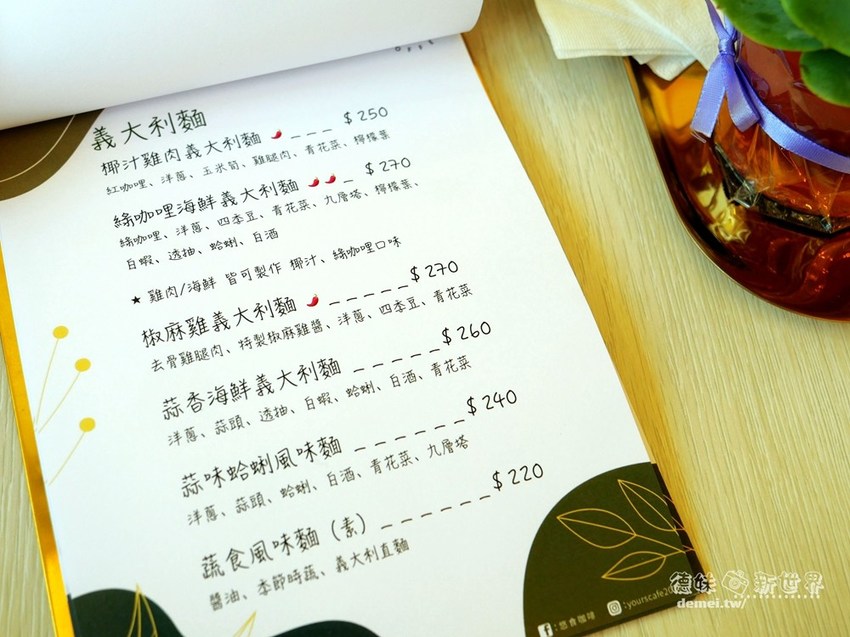 義大利麵
椰汁雞肉義大利麵 🌶 ___ $250
紅咖哩、洋蔥、玉米筍、雞腿肉、青花菜、檸檬葉
綠咖哩海鮮義大利麵 🌶🌶 _ $270
綠咖哩、洋蔥、四季豆、青花菜、九層塔、檸檬葉、
白蝦、透抽、蛤蜊、白酒
★ 雞肉/海鮮 皆可製作 椰汁、綠咖哩口味
椒麻雞義大利麵 🌶 _____ $270
去骨雞腿肉、特製椒麻雞醬、洋蔥、四季豆、青花菜
蒜香海鮮義大利麵 _____ $260
洋蔥、蒜頭、透抽、白蝦、蛤蜊、白酒、青花菜
蒜味蛤蜊風味麵 ______ $240
洋蔥、蒜頭、蛤蜊、白酒、青花菜、九層塔
蔬食風味麵（素） ______ $220
醬油、季節時蔬、義大利直麵
:悠食咖啡
:yourscafe20
德妹 新世界
demei.tw/